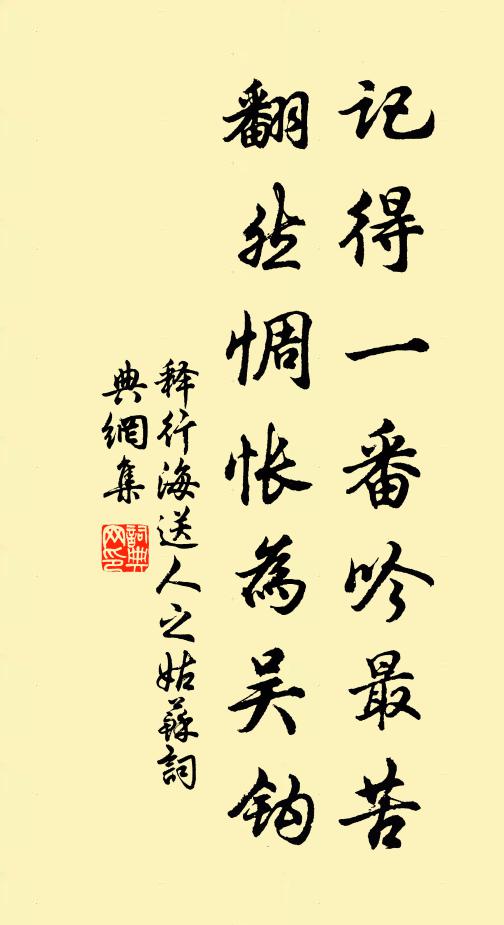 记得一番吟最苦
翻然惆怅為吴钩
释行海送人之姑蘇詞
典網集
詞典
网印